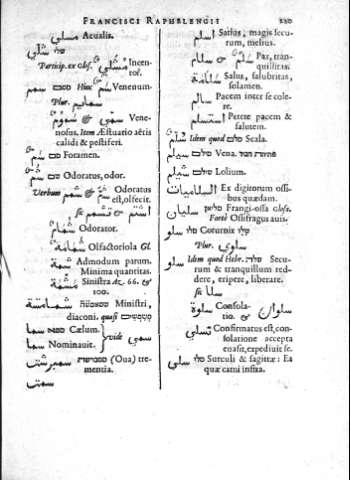 FRANCISCI RAPHELENGII
مسلى Acualis.
شلى
Particip. ex Glos. مشلى Incen-
tor.
سم סם Hinc Venenum.
Plur. سمايم
سمى & سموم Vene-
nosus. Item Æstuatio aëris
calidi & pestiferi.
سم Foramen.
شم סם Odoratus, odor.
Verbum شم & شمم Odoratus
est, olfecit.
اشتم & تشمم
شمام Odorator.
شمامة Olfactoriola Gl.
شمة Admodum parum.
Minima quantitas.
Sinistra Az. 66. &
100.
شمامسة Ministri,
diaconi. quasi
سما Cælum.
vide سمى
سما Nominauit.
سمبرشت (Oua) tre-
mentia.
سمت
اسلم Satius, magis secu-
rum, melius.
سلم & سلام Pax, tran-
quillitas.
سلامة Salus, salubritas,
solamen.
سالم Pacem inter se cole-
re.
استسلم Petere pacem &
salutem.
سلم Idem quod סלם Scala.
سيلم סלם Vena.
شيلم סלם Lolium.
السلاميات Ex digitorum ossi-
bus quædam.
سليان Frangi-ossa Glos.
Fortè Ossifragus auis.
سلو שלו Coturnix
Plur. سلوى
سلو Idem quod Hebr. שלה Secu-
rum & tranquillum red-
dere, eripere, liberare.
سلا
سلوة Consola- سلوان
tio. &
تسلى Confirmatus est, con-
solatione accepta
euasit, expediuit se.
سلى סלי Surculi & sagittæ: Ea
quæ catui insita.